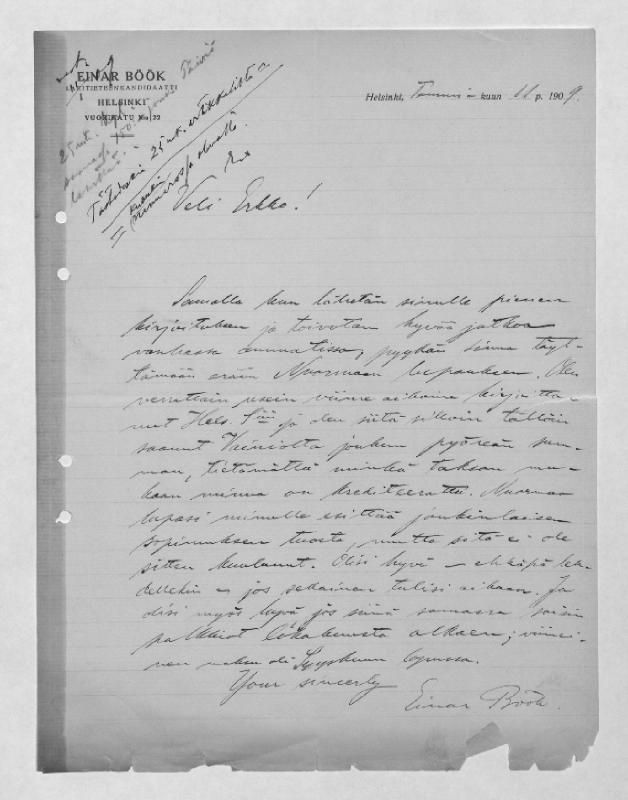 EINAR BÖÖK
LAKITIETEENKANDIDAATTI
HELSINKI
VUORIKATU No 22
Helsinki, Tammi- kuun 11 p. 1909.
25 mk.
Eero
Veli Erkko!
Samalla kun lähetän sinulle pienen
kirjoituksen ja toivotan hyvää jatkoa
vanhassa ammatissa, pyydän sinua täyt-
tämään erään Nuormaan lupauksen. Olen
verrattain usein viime aikoina kirjoitta-
nut Hels. S:iin ja olen siitä silloin tällöin
saanut Vainiolta jonkun pyöreän sum-
man, tietämättä minkä taksan mu-
kaan minua on krediteerattu. Nuormaa
lupasi minulle esittää jonkinlaisen
sopimuksen tuosta, mutta sitä ei ole
sitten kuulunut. Olisi hyvä – ehkäpä leh-
dellekin – jos sellainen tulisi aikaan. Ja
olisi myös hyvä jos siinä samassa saisin
palkkiot lokakuusta alkaen; viimei-
nen oli Syyskuun lopussa.
Your sincerly
Einar Böök.